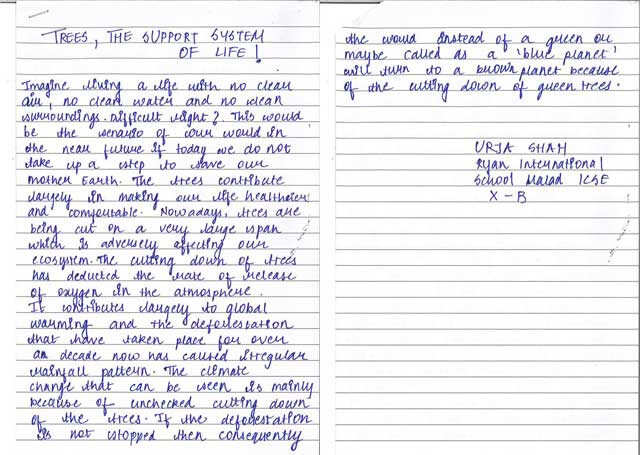 TREES, THE SUPPORT SYSTEM
OF LIFE!
Imagine living a life with no clean
air, no clean water and no clean
surroundings. Difficult right? This would
be the scenario of our would in
the near future if today we do not
take up a step to save our
mother Earth. The trees contribute
largely in making our life healthier
and comfortable. Nowadays, trees are
being cut on a very large span
which is adversely affecting our
ecosystem. The cutting down of trees
has deducted the rate of release
of oxygen in the atmosphere.
It contributes largely to global
warming and the deforestation
that have taken place for over
a decade now has caused irregular
rainfall pattern. The climate
change that can be seen is mainly
because of unchecked cutting down
of the trees. If the deforestation
is not stopped then consequently
the would instead of a green or
maybe called as a 'blue planet'
will turn to a brown planet because
of the cutting down of green trees.
URJA SHAH
Ryan International
School Malad ICSE
X - B